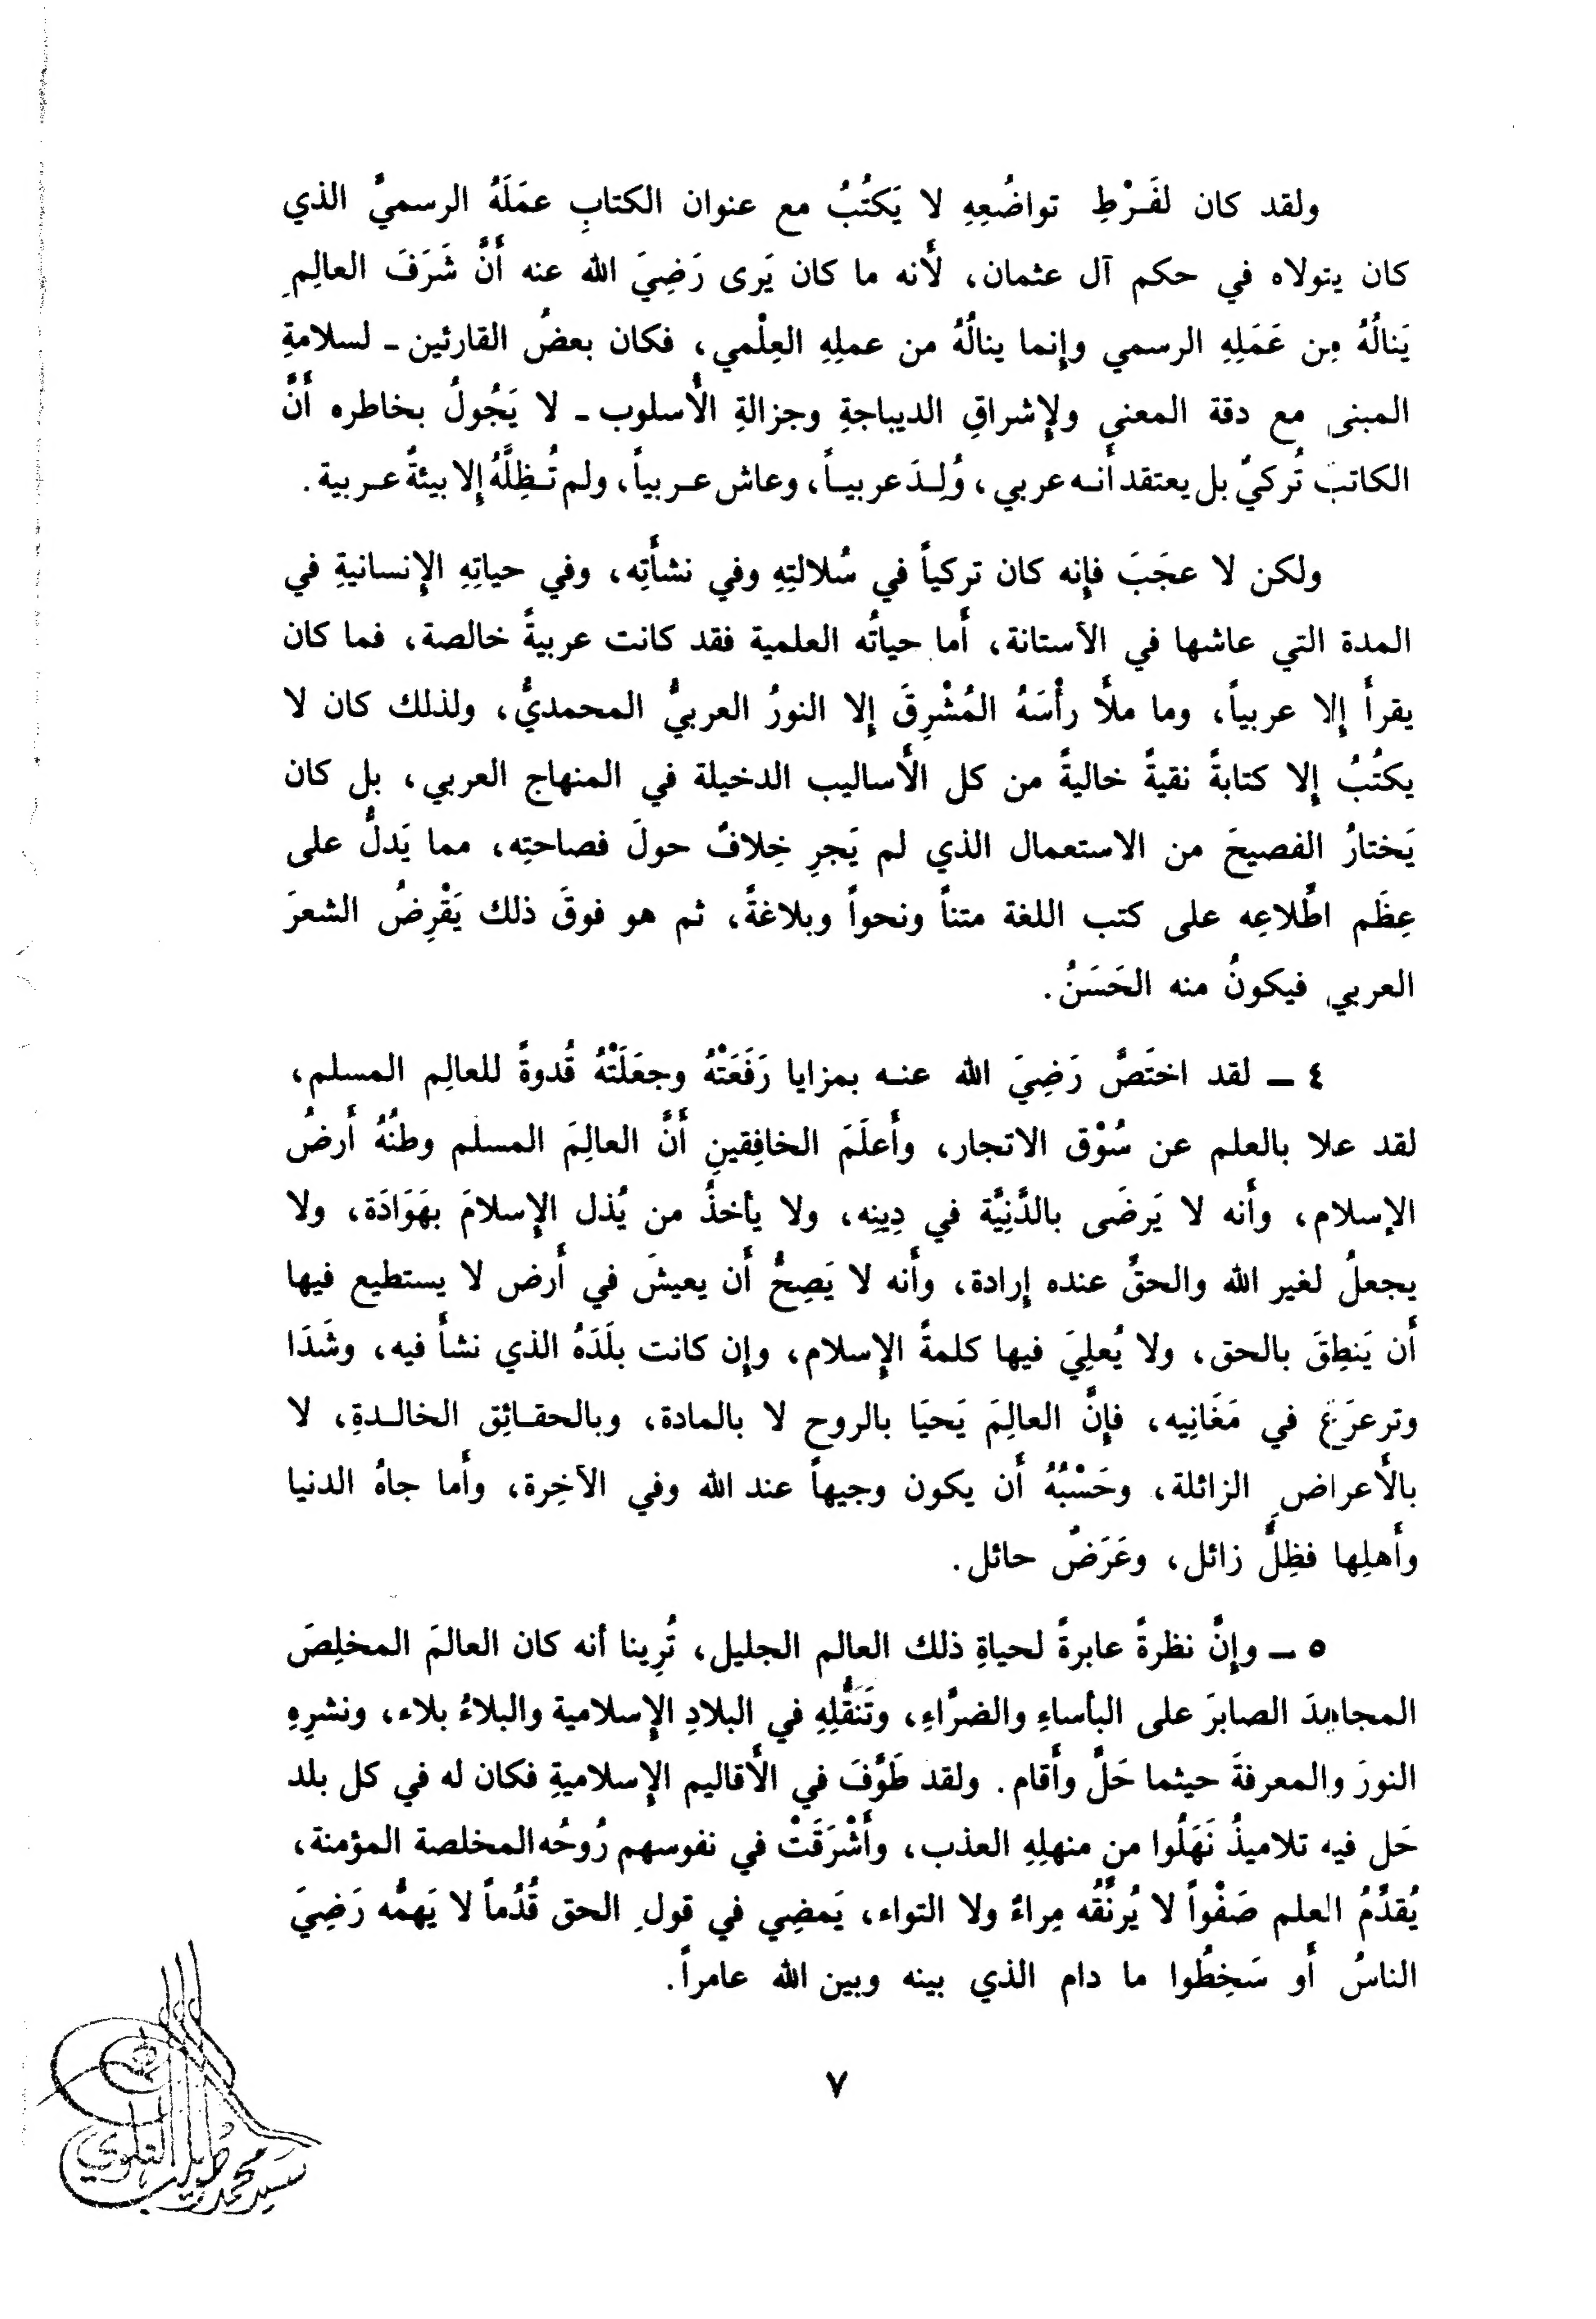 ولقد كان لفَـرْطِ تواضُعِهِ لا يَكتُبُ مع عنوان الكتابِ عمَلَهُ الرسميَّ الذي
كان يتولاه في حكم آل عثمان، لأنه ما كان يَرى رَضِيَ الله عنه أَنَّ شَرَفَ العالِمِ
يَنالُهُ مِن عَمَلِهِ الرسمي وإنما ينالُهُ من عملِهِ العِلْمي، فكان بعضُ القارئين ـ لسلامةِ
المبنى مع دقة المعنى ولإشراقِ الديباجةِ وجزالةِ الأُسلوب ـ لا يَجُولُ بخاطره أَنَّ
الكاتبَ تُركيٌّ بل يعتقد أَنـه عربي، وُلِـدَ عربيـاً، وعاش عـربياً، ولم تُـظِلَّهُ إلا بيئةٌ عـربية.
ولكن لا عجَبَ فإنه كان تركياً في سُلالتِهِ وفي نشأَتِه، وفي حياتِهِ الإنسانيةِ في
المدة التي عاشها في الآستانة، أَما حياتُه العلمية فقد كانت عربيةً خالصة، فما كان
يقرأُ إلا عربياً، وما ملأَ رأْسَهُ المُشْرِقَ إلا النورُ العربيُّ المحمديُّ، ولذلك كان لا
يكتُبُ إلا كتابةً نقيةً خاليةً من كل الأَساليب الدخيلة في المنهاج العربي، بل كان
يَختارُ الفصيحَ من الاستعمال الذي لم يَجرِ خِلافٌ حولَ فصاحتِه، مما يَدلُّ على
عِظَم اطِّلاعِه على كتب اللغة متناً ونحواً وبلاغةً، ثم هو فوقَ ذلك يَقْرِضُ الشعرَ
العربي فيكونُ منه الحَسَنُ.
٤ ـ لقد اختَصَّ رَضِيَ الله عنـه بمزايا رَفَعَتْهُ وجعَلَتْهُ قُدوةً للعالِم المسلم،
لقد علا بالعلم عن سُوْق الاتجار، وأَعلَمَ الخافِقينِ أَنَّ العالِمَ المسلم وطنُهُ أَرضُ
الإسلام، وأَنه لا يَرضَى بالدَّنِيَّة في دِينِه، ولا يأخذُ من يُذل الإسلامَ بهَوَادَة، ولا
يجعلُ لغير الله والحقِّ عنده إرادة، وأَنه لا يَصِحُّ أَن يعيشَ في أَرض لا يستطيع فيها
أَن يَنطِقَ بالحق، ولا يُعلِيَ فيها كلمةَ الإسلام، وإن كانت بلَدَهُ الذي نشأَ فيه، وشَدَا
وترعرَعَ في مَغَانِيه، فإنَّ العالِمَ يَحيَا بالروح لا بالمادة، وبالحقـائِق الخالـدةِ، لا
بالأَعراضِ الزائلة، وحَسْبُهُ أَن يكون وجيهاً عند الله وفي الآخِرة، وأَما جاهُ الدنيا
وأَهلِها فظِلٌّ زائل، وعَرَضٌ حائل.
٥ ـ وإنَّ نظرةً عابرةً لحياةِ ذلك العالم الجليل، تُرِينا أنه كان العالمَ المخلِصَ
المجاهدَ الصابرَ على البأساءِ والضرَّاءِ، وتَنَقُّلِهِ في البلادِ الإسلامية والبلاءُ بلاء، ونشرِهِ
النورَ والمعرفةَ حيثما حَلَّ وأَقام. ولقد طَوَّفَ في الأَقاليم الإسلاميةِ فكان له في كل بلد
حَل فيه تلاميذُ نَهَلُوا من منهلِهِ العذب، وأَشْرَقَتْ في نفوسهم رُوحُه المخلصة المؤمنة،
يُقدِّمُ العلم صَفْواً لا يُرنِّقُه مِراءٌ ولا التواء، يَمضِي في قولِ الحق قُدُماً لا يَهمُّه رَضِيَ
الناسُ أَو سَخِطُوا ما دام الذي بينه وبين الله عامراً.
٧